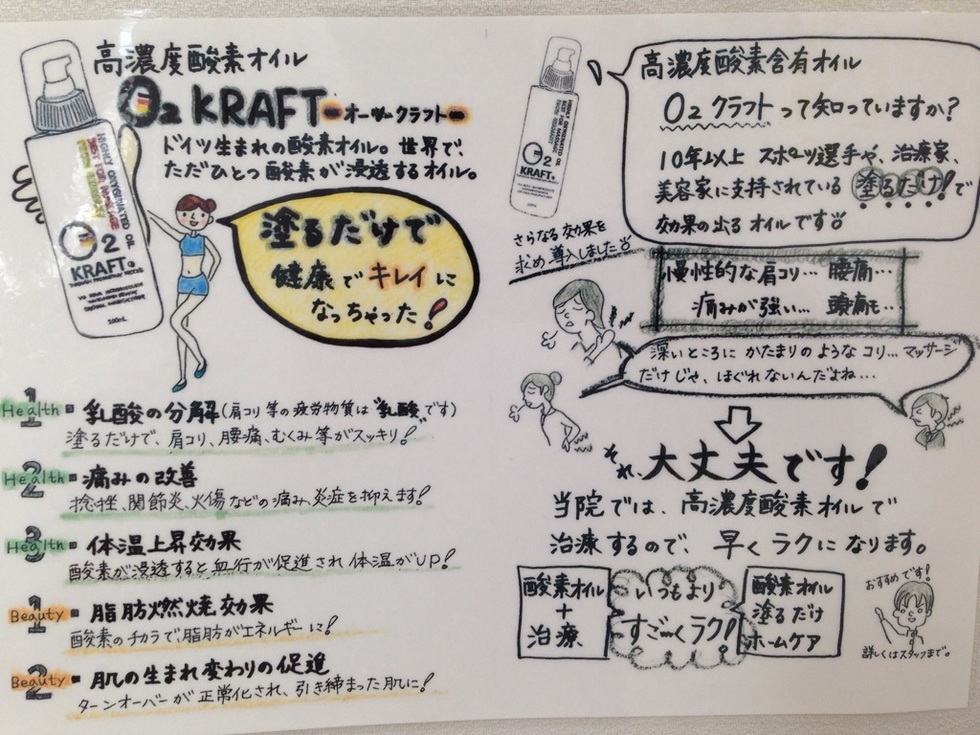 高濃度酸素オイル
O2 KRAFT
-オーツークラフト-
ドイツ生まれの酸素オイル。世界で、
ただひとつ酸素が浸透するオイル。
HIGHLY OXYGENATED OIL
O2
KRAFT
100mL
塗るだけで
健康でキレイに
なっちゃった!
Health 1 乳酸の分解(肩コリ等の疲労物質は"乳酸"です)
塗るだけで、肩コリ、腰痛、むくみ等がスッキリ!
Health 2 痛みの改善
捻挫、関節炎、火傷などの痛み、炎症を抑えます!
Health 3 体温上昇効果
酸素が浸透すると血行が促進され体温がUP!
Beauty 1 脂肪燃焼効果
酸素のチカラで脂肪がエネルギーに!
Beauty 2 肌の生まれ変わりの促進
ターンオーバーが正常化され、引き締まった肌に!
O2
KRAFT
高濃度酸素含有オイル
O2クラフトって知っていますか?
10年以上 スポーツ選手や、治療家、
美容家に支持されている 塗るだけ!で
効果の出るオイルです
さらなる効果を
求め導入しました
慢性的な肩コリ… 腰痛…
痛みが強い… 頭痛も…
深いところにかたまりのようなコリ…マッサージ
だけじゃ、ほぐれないんだよね…
それ、大丈夫です!
当院では、高濃度酸素オイルで
治療するので、早くラクになります。
酸素オイル
+
治療
いつもより
すご〜くラク!
酸素オイル
塗るだけ
ホームケア
おすすめです!
詳しくはスタッフまで。